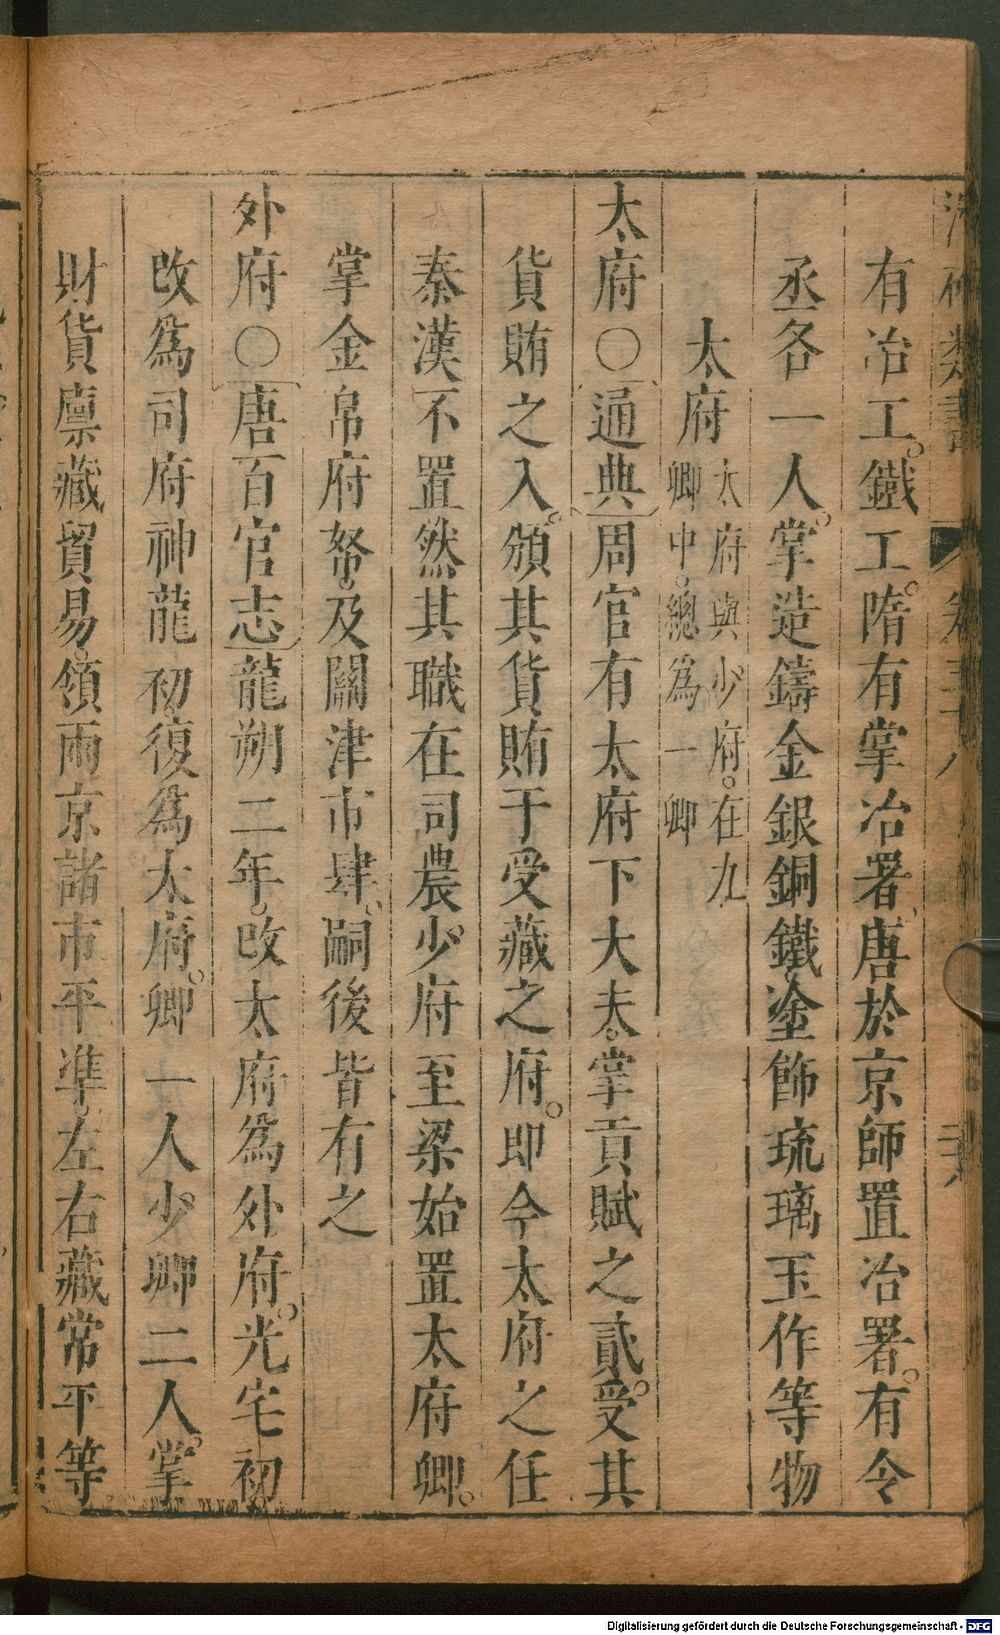 有冶工。鐵工。隋有掌冶署。唐於京師置冶署。有令
丞各一人。掌造鑄金銀銅鐵塗飾琉璃玉作等物
太府 太府與少府。在九
卿中。總為一卿
太府○通典周官有太府下大夫。掌貢賦之貳。受其
貨賄之入。頒其貨賄于受藏之府。即今太府之任
秦漢不置然其職在司農少府至梁始置太府卿。
掌金帛府帑。及關津市肆。嗣後皆有之
外府○唐百官志龍朔二年。改太府為外府。光宅初
改為司府神龍初復為太府。卿一人少卿二人。掌
財貨廩藏貿易。領兩京諸市平準。左右藏常平等
Digitalisierung gefördert durch die Deutsche Forschungsgemeinschaft - DFG